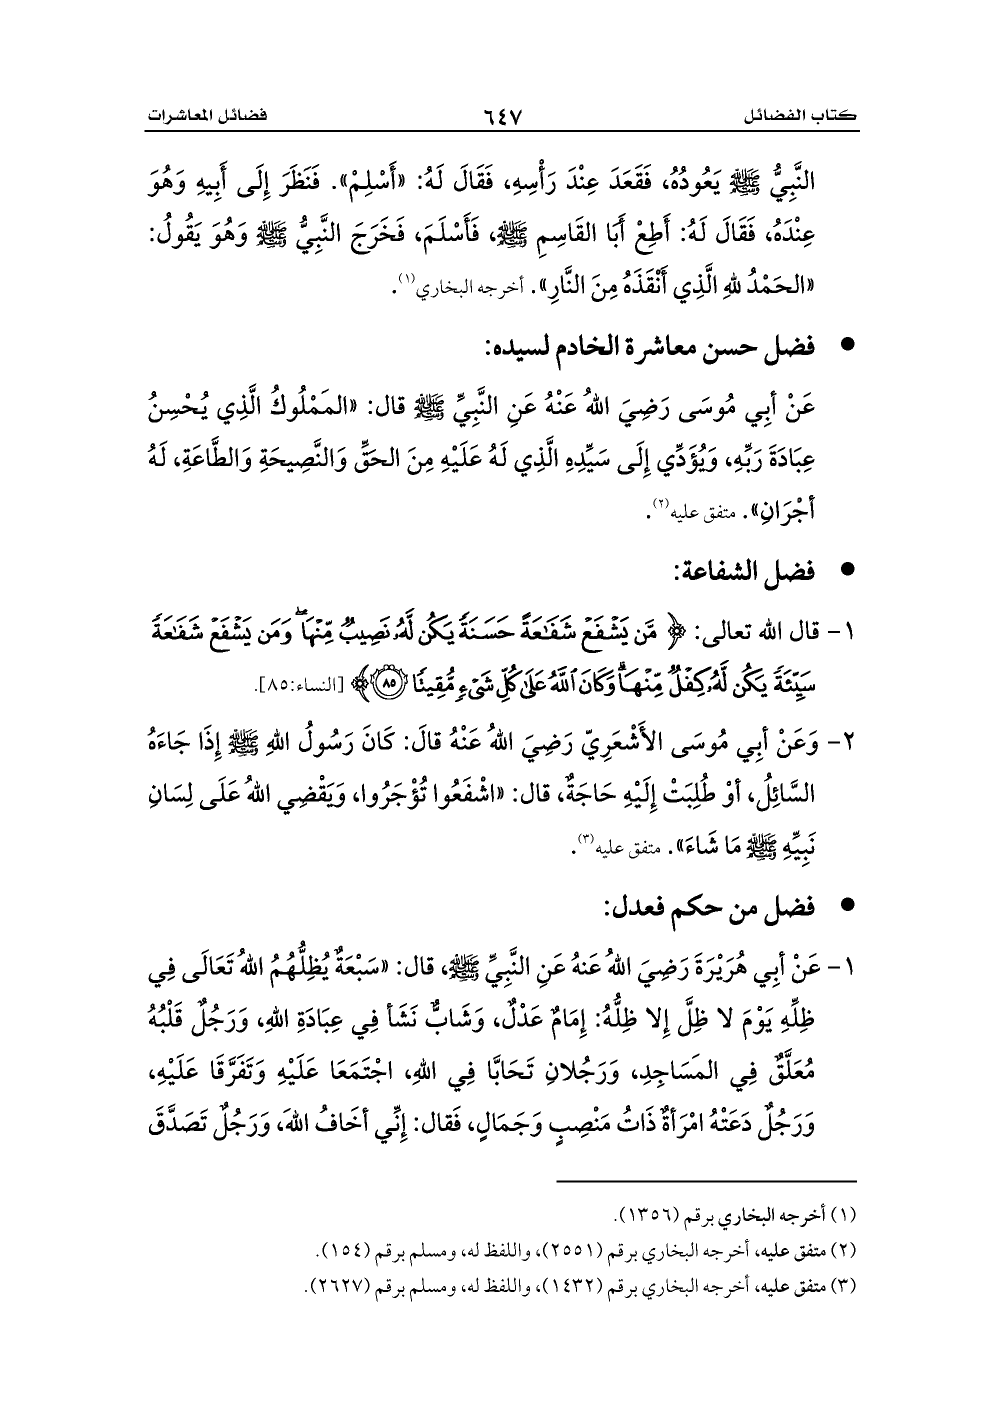 كتاب الفضائل ٦٤٧ فضائل المعاشرات
النَّبِيُّ ﷺ يَعُودُهُ، فَقَعَدَ عِنْدَ رَأْسِهِ، فَقَالَ لَهُ: «أَسْلِمْ». فَنَظَرَ إِلَى أَبِيهِ وَهُوَ
عِنْدَهُ، فَقَالَ لَهُ: أَطِعْ أَبَا القَاسِمِ ﷺ، فَأَسْلَمَ، فَخَرَجَ النَّبِيُّ ﷺ وَهُوَ يَقُولُ:
«الحَمْدُ للهِ الَّذِي أَنْقَذَهُ مِنَ النَّارِ». أخرجه البخاري(١).
● فضل حسن معاشرة الخادم لسيده:
عَنْ أبِي مُوسَى رَضِيَ اللهُ عَنْهُ عَنِ النَّبِيِّ ﷺ قال: «المَمْلُوكُ الَّذِي يُحْسِنُ
عِبَادَةَ رَبِّهِ، وَيُؤَدِّي إِلَى سَيِّدِهِ الَّذِي لَهُ عَلَيْهِ مِنَ الحَقِّ وَالنَّصِيحَةِ وَالطَّاعَةِ، لَهُ
أجْرَانِ». متفق عليه(٢).
● فضل الشفاعة:
١- قال الله تعالى: ﴿ مَّن يَشْفَعْ شَفَٰعَةً حَسَنَةً يَكُن لَّهُۥ نَصِيبٌ مِّنْهَا ۖ وَمَن يَشْفَعْ شَفَٰعَةً
سَيِّئَةً يَكُن لَّهُۥ كِفْلٌ مِّنْهَا ۗ وَكَانَ ٱللَّهُ عَلَىٰ كُلِّ شَىْءٍ مُّقِيتًا ٨٥ ﴾ [النساء:٨٥].
٢- وَعَنْ أبِي مُوسَى الأَشْعَرِيّ رَضِيَ اللهُ عَنْهُ قالَ: كَانَ رَسُولُ اللهِ ﷺ إِذَا جَاءَهُ
السَّائِلُ، أوْ طُلِبَتْ إِلَيْهِ حَاجَةٌ، قال: «اشْفَعُوا تُؤْجَرُوا، وَيَقْضِي اللهُ عَلَى لِسَانِ
نَبِيِّهِ ﷺ مَا شَاءَ». متفق عليه(٣).
● فضل من حكم فعدل:
١- عَنْ أبِي هُرَيْرَةَ رَضِيَ اللهُ عَنهُ عَنِ النَّبِيِّ ﷺ، قال: «سَبْعَةٌ يُظِلُّهُمُ اللهُ تَعَالَى فِي
ظِلِّهِ يَوْمَ لا ظِلَّ إِلا ظِلُّهُ: إِمَامٌ عَدْلٌ، وَشَابٌّ نَشَأ فِي عِبَادَةِ اللهِ، وَرَجُلٌ قَلْبُهُ
مُعَلَّقٌ فِي المَسَاجِدِ، وَرَجُلانِ تَحَابَّا فِي اللهِ، اجْتَمَعَا عَلَيْهِ وَتَفَرَّقَا عَلَيْهِ،
وَرَجُلٌ دَعَتْهُ امْرَأةٌ ذَاتُ مَنْصِبٍ وَجَمَالٍ، فَقال: إِنِّي أخَافُ اللهَ، وَرَجُلٌ تَصَدَّقَ
(١) أخرجه البخاري برقم (١٣٥٦).
(٢) متفق عليه، أخرجه البخاري برقم (٢٥٥١)، واللفظ له، ومسلم برقم (١٥٤).
(٣) متفق عليه، أخرجه البخاري برقم (١٤٣٢)، واللفظ له، ومسلم برقم (٢٦٢٧).